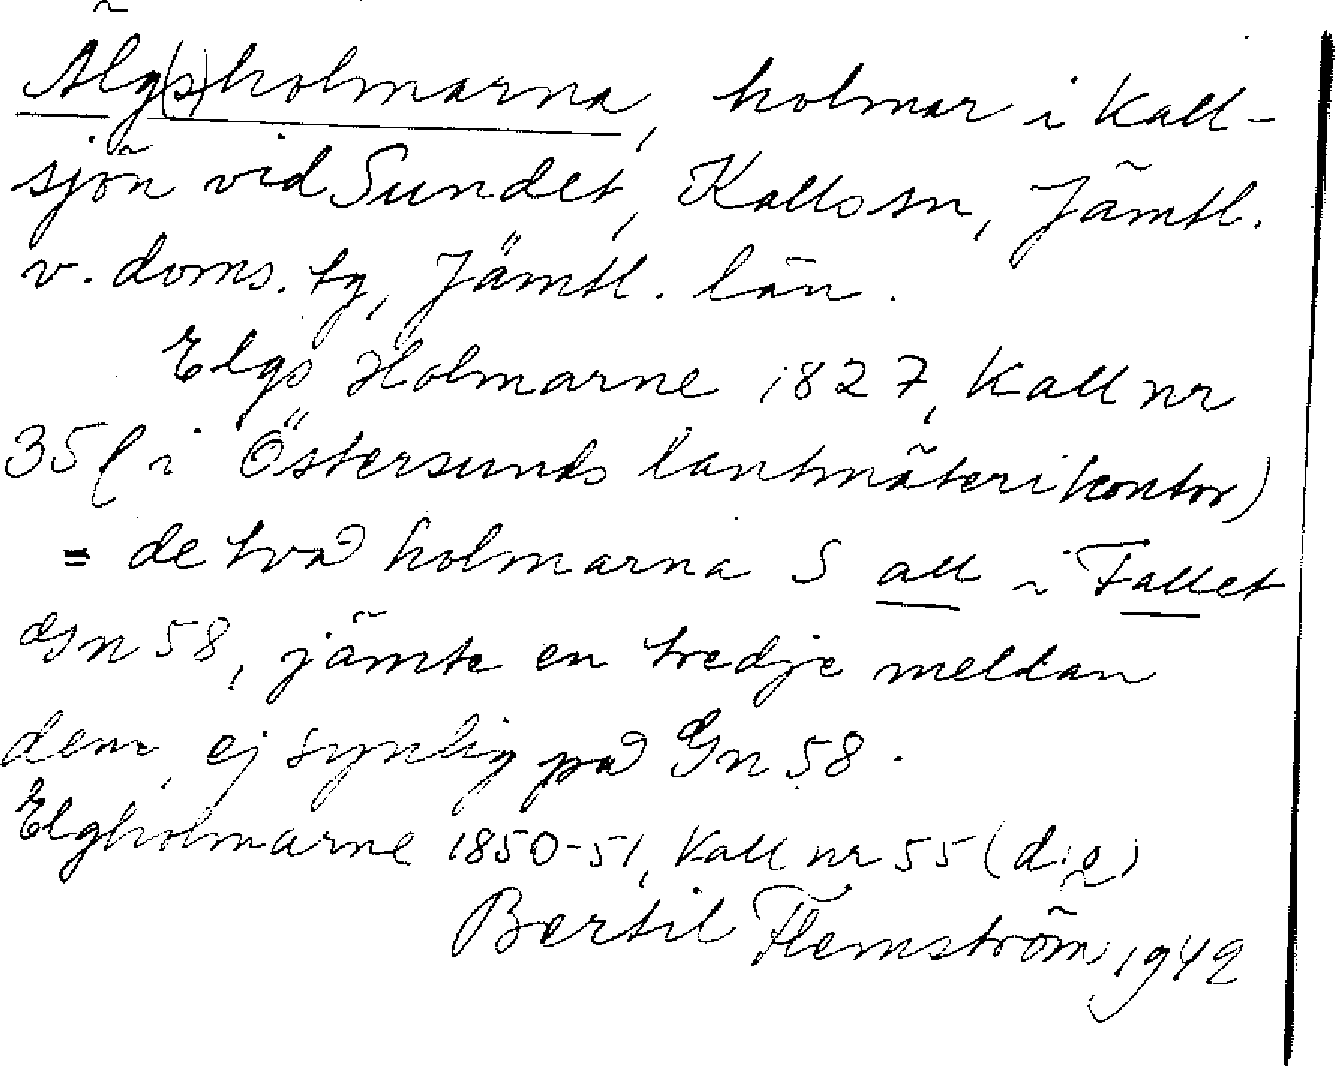 Älg(s)holmarna, holmar i Kall-
sjön vid Sundet, Kalls sn, Jämtl.
v. doms. tg, Jämtl. län.
Elgs Holmarne 1827, Kall nr
35 (i Östersunds lantmäterikontor)
= de två holmarna S all i Fallet
Gn 58, jämte en tredje mellan
dem, ej synlig på Gn 58.
Elgholmarne 1850-51, Kall nr 55 (d:o)
Bertil Flemström 1942